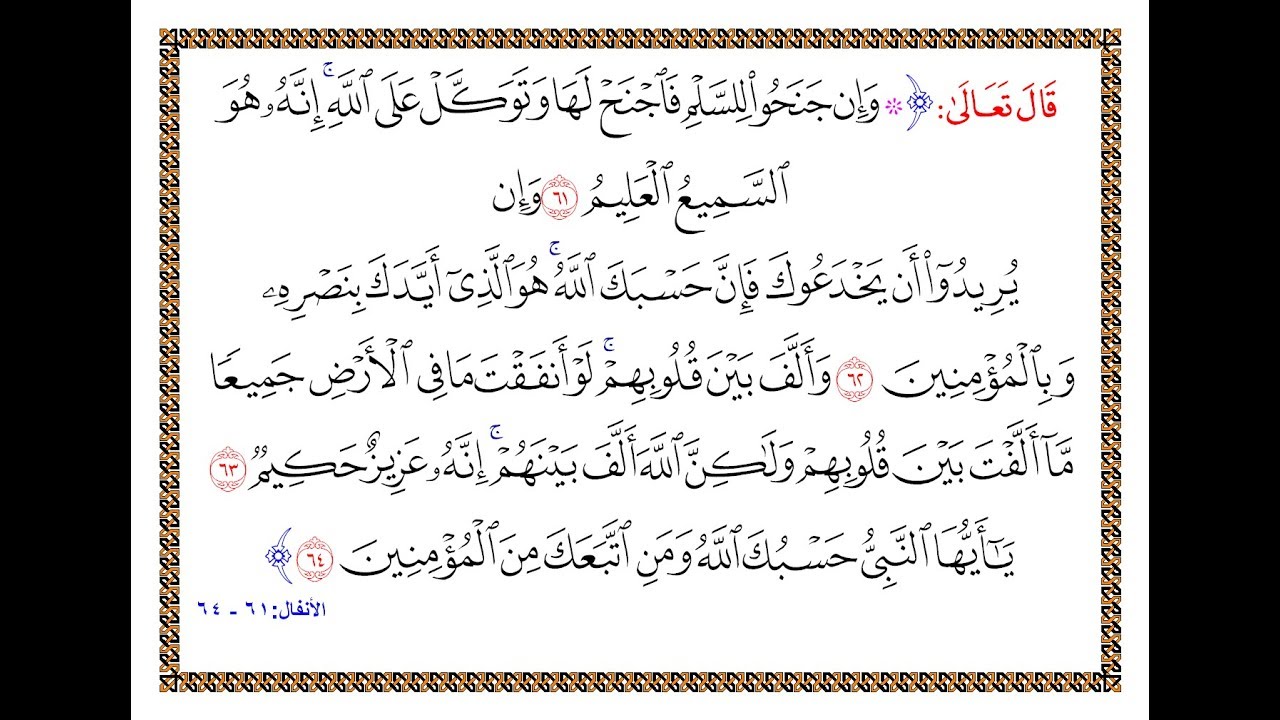 قَالَ تَعَالَىٰ: ﴿ * وَإِن جَنَحُواْ لِلسَّلۡمِ فَٱجۡنَحۡ لَهَا وَتَوَكَّلۡ عَلَى ٱللَّهِۚ إِنَّهُۥ هُوَ
ٱلسَّمِيعُ ٱلۡعَلِيمُ ٦١ وَإِن
يُرِيدُوٓاْ أَن يَخۡدَعُوكَ فَإِنَّ حَسۡبَكَ ٱللَّهُۚ هُوَ ٱلَّذِيٓ أَيَّدَكَ بِنَصۡرِهِۦ
وَبِٱلۡمُؤۡمِنِينَ ٦٢ وَأَلَّفَ بَيۡنَ قُلُوبِهِمۡۚ لَوۡ أَنفَقۡتَ مَا فِي ٱلۡأَرۡضِ جَمِيعٗا
مَّآ أَلَّفۡتَ بَيۡنَ قُلُوبِهِمۡ وَلَٰكِنَّ ٱللَّهَ أَلَّفَ بَيۡنَهُمۡۚ إِنَّهُۥ عَزِيزٌ حَكِيمٞ ٦٣
يَٰٓأَيُّهَا ٱلنَّبِيُّ حَسۡبُكَ ٱللَّهُ وَمَنِ ٱتَّبَعَكَ مِنَ ٱلۡمُؤۡمِنِينَ ٦٤ ﴾
الأنفال: ٦١ - ٦٤